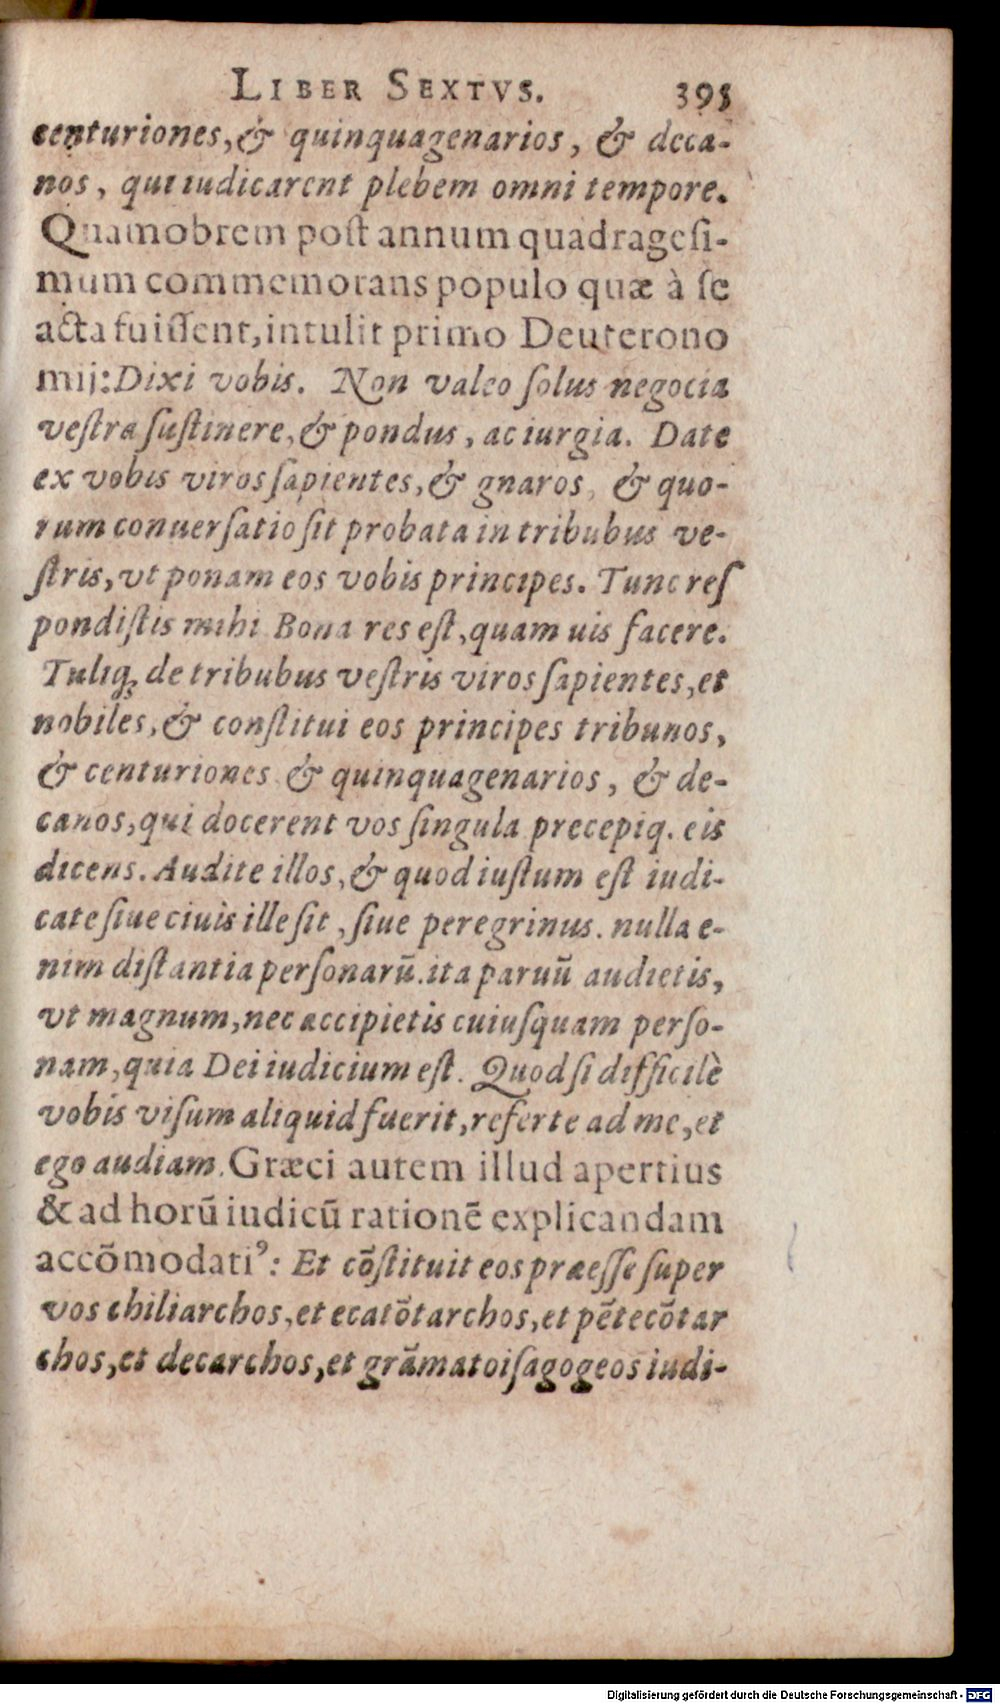 LIBER SEXTVS. 395
centuriones, & quinquagenarios, & deca-
nos, qui iudicarent plebem omni tempore.
Quamobrem poſt annum quadrageſi-
mum commemorans populo quæ à ſe
acta fuiſſent, intulit primo Deuterono
mij: Dixi vobis. Non valeo ſolus negocia
veſtra ſuſtinere, & pondus, ac iurgia. Date
ex vobis viros ſapientes, & gnaros, & quo-
rum conuerſatio ſit probata in tribubus ve-
ſtris, vt ponam eos vobis principes. Tunc reſ
pondiſtis mihi Bona res eſt, quam uis facere.
Tuliq; de tribubus veſtris viros ſapientes, et
nobiles, & conſtitui eos principes tribunos,
& centuriones & quinquagenarios, & de-
canos, qui docerent vos ſingula precepiq. eis
dicens. Audite illos, & quod iuſtum eſt iudi-
cate ſiue ciuis ille ſit, ſiue peregrinus. nulla e-
nim diſtantia perſonarū. ita paruū audietis,
vt magnum, nec accipietis cuiuſquam perſo-
nam, quia Dei iudicium eſt. Quod ſi difficilè
vobis viſum aliquid fuerit, referte ad me, et
ego audiam. Græci autem illud apertius
& ad horū iudicū rationē explicandam
accōmodatiꝰ: Et cōſtituit eos præeſſe ſuper
vos chiliarchos, et ecatōtarchos, et pētecōtar
chos, et decarchos, et grāmatoiſagogeos iudi-
Digitalisierung gefördert durch die Deutsche Forschungsgemeinschaft - DFG